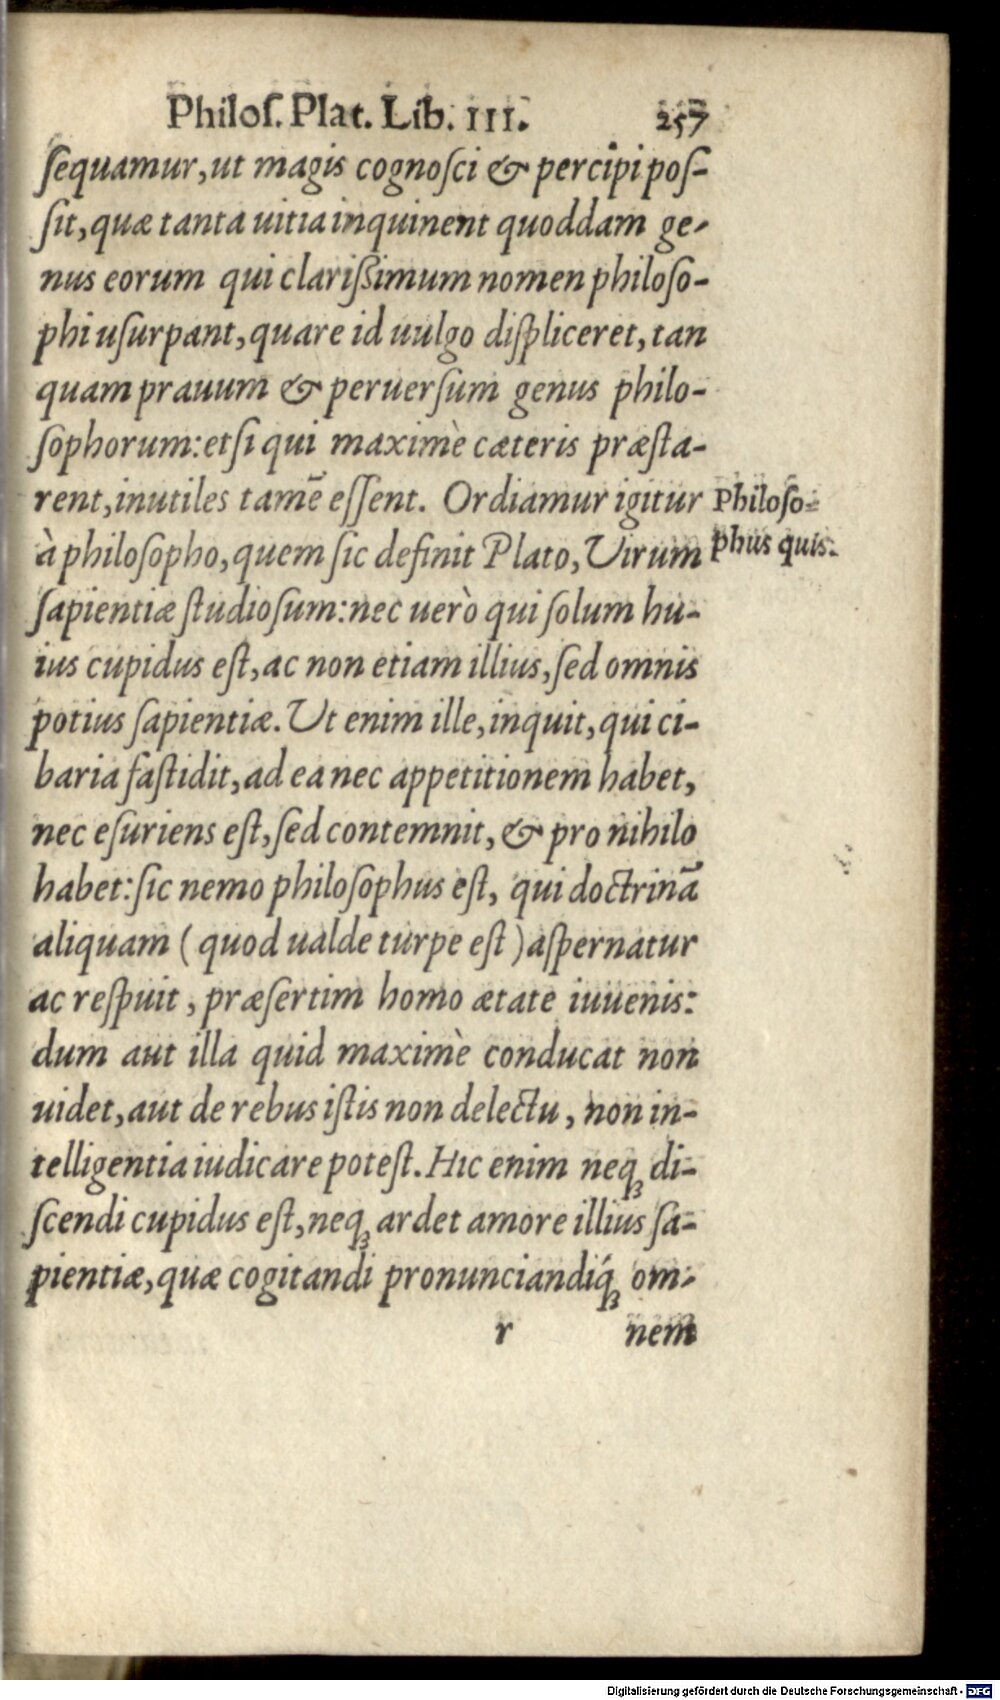 Philoſ. Plat. Lib. III. 257
ſequamur, ut magis cognoſci & percipi poſ-
ſit, quæ tanta uitia inquinent quoddam ge-
nus eorum qui clariſsimum nomen philoſo-
phi uſurpant, quare id uulgo diſpliceret, tan
quam prauum & peruerſum genus philo-
ſophorum: et ſi qui maximè cæteris præſta-
rent, inutiles tamē eſſent. Ordiamur igitur
à philoſopho, quem ſic definit Plato, Uirum
ſapientiæ ſtudioſum: nec uerò qui ſolum hu-
ius cupidus eſt, ac non etiam illius, ſed omnis
potius ſapientiæ. Ut enim ille, inquit, qui ci-
baria faſtidit, ad ea nec appetitionem habet,
nec eſuriens eſt, ſed contemnit, & pro nihilo
habet: ſic nemo philoſophus eſt, qui doctrinā
aliquam ( quod ualde turpe eſt ) aſpernatur
ac reſpuit, præſertim homo ætate iuuenis:
dum aut illa quid maximè conducat non
uidet, aut de rebus iſtis non delectu, non in-
telligentia iudicare poteſt. Hic enim neqꝫ di-
ſcendi cupidus eſt, neqꝫ ardet amore illius ſa-
pientiæ, quæ cogitandi pronunciandiq́ꝫ om-
r nem
Philoſo-
phus quis.
Digitalisierung gefördert durch die Deutsche Forschungsgemeinschaft - DFG